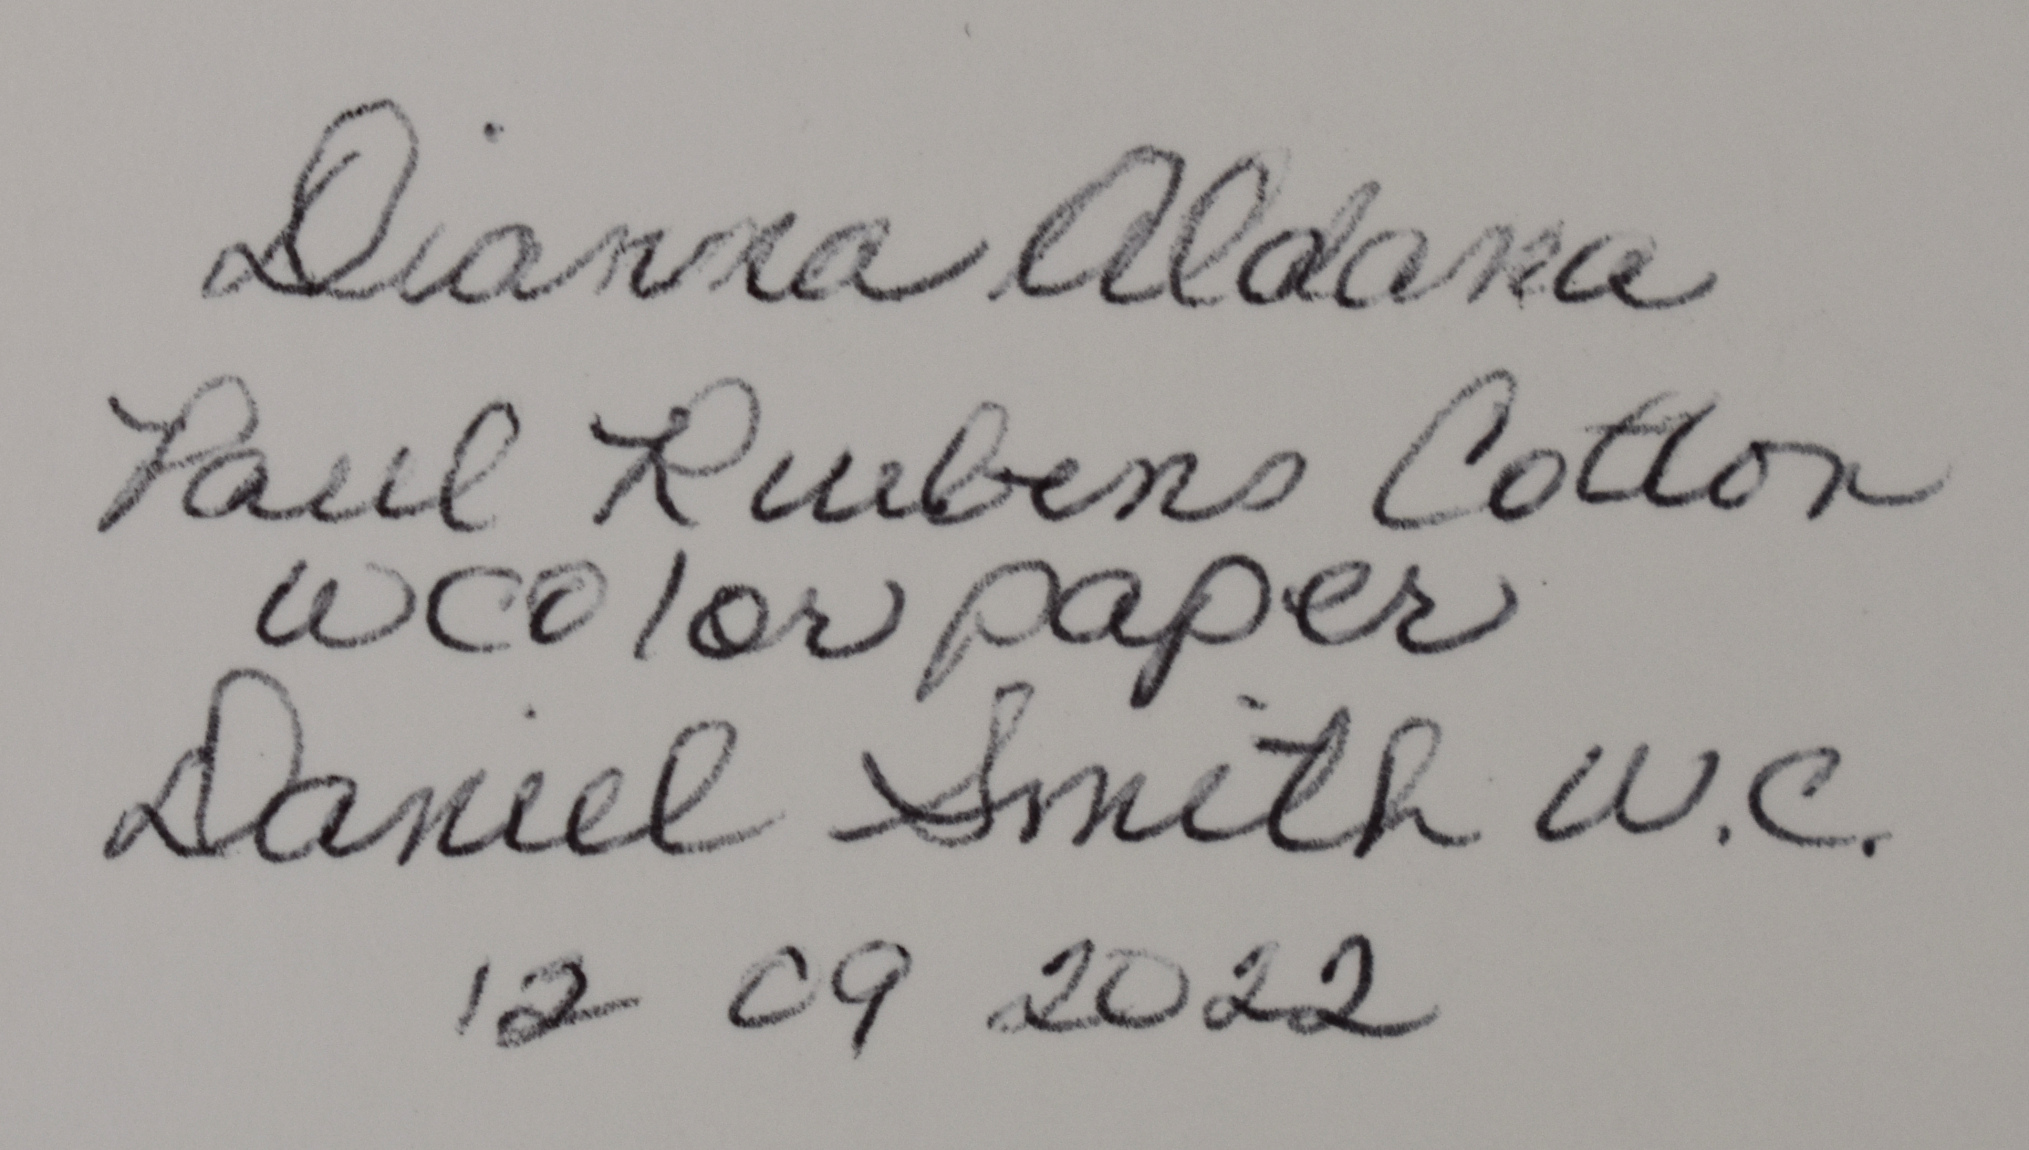 Dianna Aldana
Paul Rubens Cotton
wcolor paper
Daniel Smith W.C.
12 09 2022